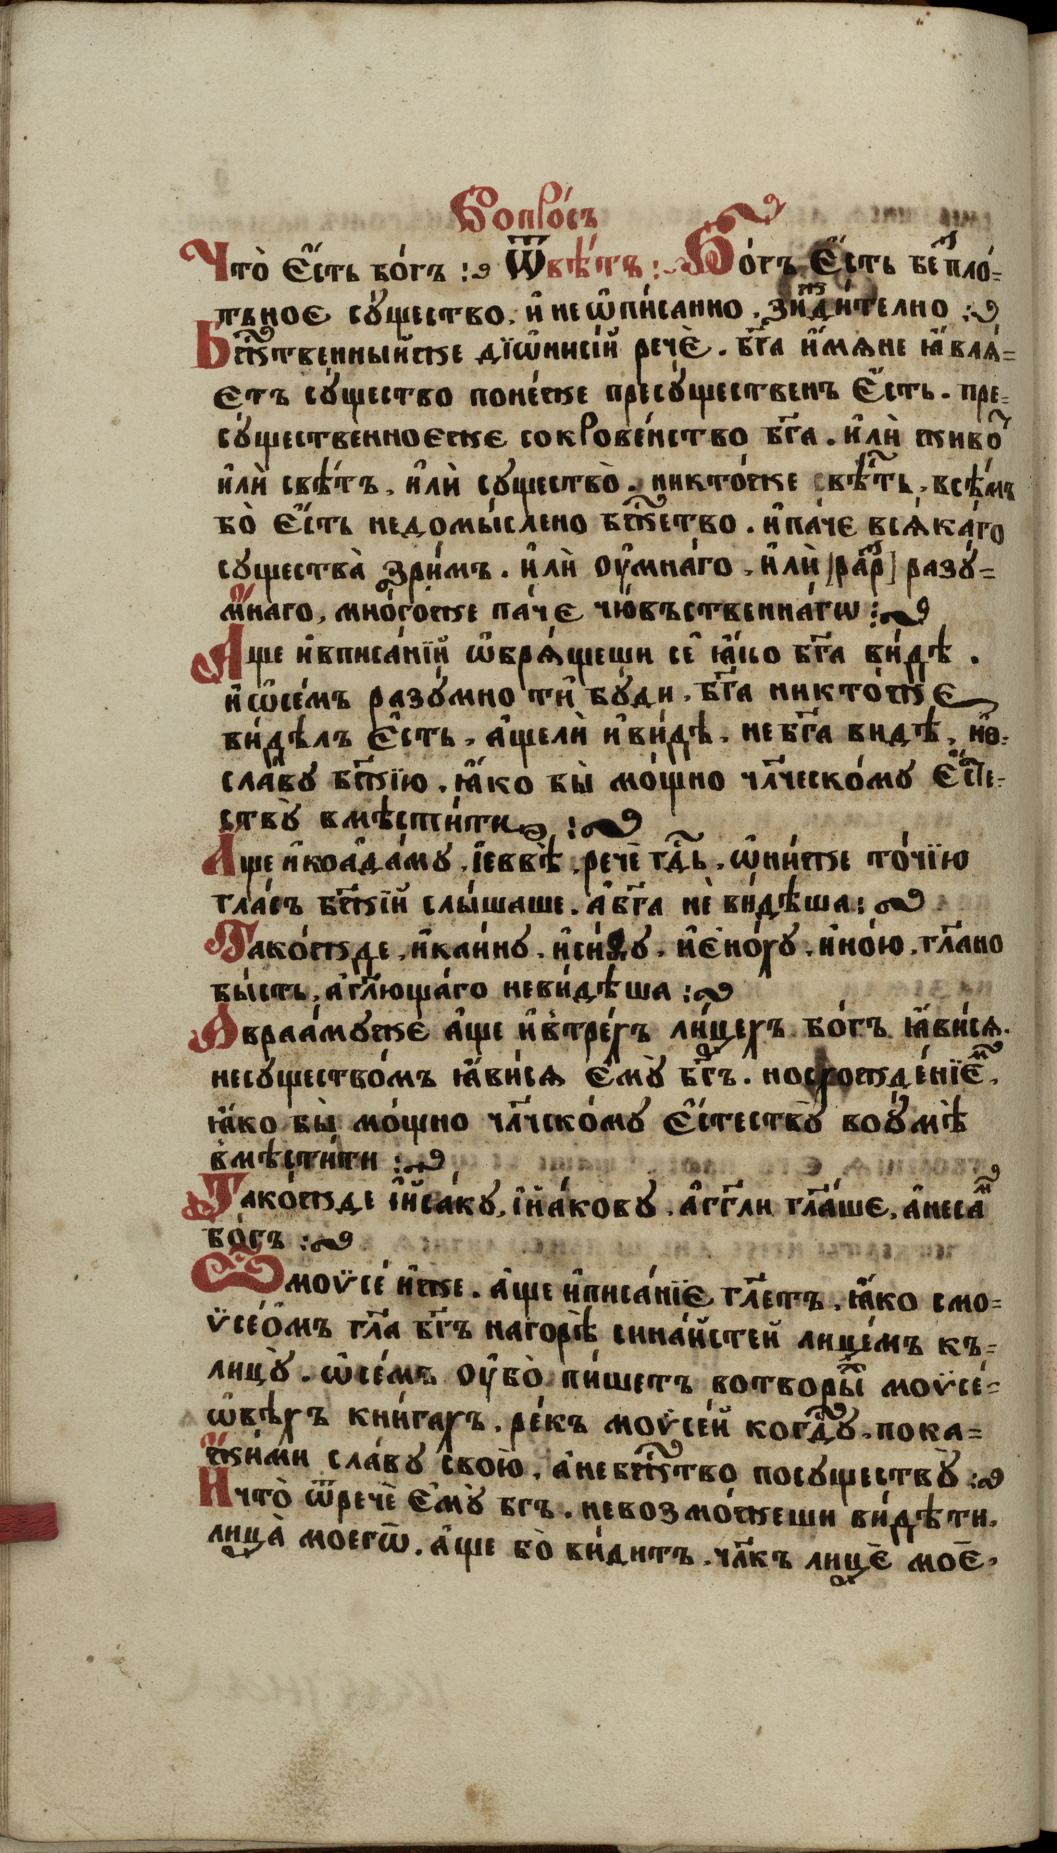 Вопро́съ
Что̀ є҆́сть бо́гъ :~ Ѿвѣ́тъ :~ Бо́гъ є҆́сть бепло́=
тъное сꙋ́щество. и҆ неѡ҆пи́санно. зижди́телно :~
Бж҃ственныйже дїѡ҆ни́сїй речѐ. бг҃а и҆́мѧне ꙗ҆влѧ́=
етъ сꙋ́щество поне́же пресꙋ́щественъ є҆́сть. пре=
сꙋ́щественноеже сокрове́нство бг҃а. и҆лѝ живо́
и҆лѝ свѣ́тъ, и҆лѝ сꙋщество̀. никто́же свѣ́сть, всѣ́мъ
бо̀ є҆́сть недомы́слено бж҃ество. и҆па́че всѧ́ка́го
сꙋщества̀ зри́мъ. и҆лѝ ᲂу҆́мна́го, и҆лѝ [ра́р] разꙋ́=
мнаго, мно́гоже па́че чю́въственнагѡ :~
А҆́ще и҆вписа́нїй ѡ҆брѧ́щеши се҆ ꙗ҆́ко бг҃а ви́дѣ.
и҆ ѡ҆се́мъ разꙋ́мно ти҆ бꙋ́ди, бг҃а никто́же
ви́дѣлъ є҆́сть, а҆́щелѝ и҆ви́дѣ, небг҃а видѣ, но̑
сла́вꙋ бж҃їю. ꙗ҆́ко бы̀ мо́щно чл҃ческо́мꙋ є҆сте=
ствꙋ̀ вмѣсти́ти :~
А҆́ще и҆коа҆да́мꙋ, і҆е́ввѣ, речѐ гд҃ь, ѡ҆ни́же то́чїю
гла́съ бж҃їй слы́шаше. а҆бг҃а нѐ ви́дѣша :~
Тако́жде, и҆ка́инꙋ, и҆си́фꙋ. и҆є҆но́хꙋ, и҆но́ю, гл҃ано
бы́сть, а҆гл҃юща́го неви́дѣша :~
А҆враа́мꙋже а҆́ще и҆втре́хъ ли́цехъ бо́гъ ꙗ҆ви́сѧ.
несꙋщество́мъ ꙗ҆ви́сѧ є҆мꙋ̀ бг҃ъ. носхожде́нїе҆м,
ꙗ҆́ко бы̀ мо́щно чл҃чско́мꙋ є҆стествꙋ̀ воᲂу҆мѣ̀
вмѣсти́ти :~
Тако́жде і҆иса́кꙋ, і҆и҆а́ковꙋ. а҆́гг҃ли гл҃аше, а҆неса́м
бо́гъ :~
Ѡ҆моѵ̈се́и҆же. а҆́ще и҆писа́нїе гл҃етъ. ꙗ҆́ко смо=
ѵ̈се́омъ гл҃а бг҃ъ нагорѣ̀ сина́йстей лице́мъ къ=
лицꙋ̀. ѡ҆се́мъ ᲂу҆́бо̀ пи́шетъ вотворы́й моѵ̈се́=
ѡ҆вѣ́хъ кни́гахъ. ре́къ моѵ̈се́й ко гд҃ꙋ. пока=
жи́ми сла́вꙋ свою̀. а҆небж҃ство посꙋществꙋ̀ :~
И҆что̀ ѿречѐ є҆мꙋ̀ бг҃ъ. невозмо́жеши ви́дѣти.
лица̀ моегѡ̀. а҆́ще бо̀ ви́дитъ. чл҃къ лицѐ моѐ.